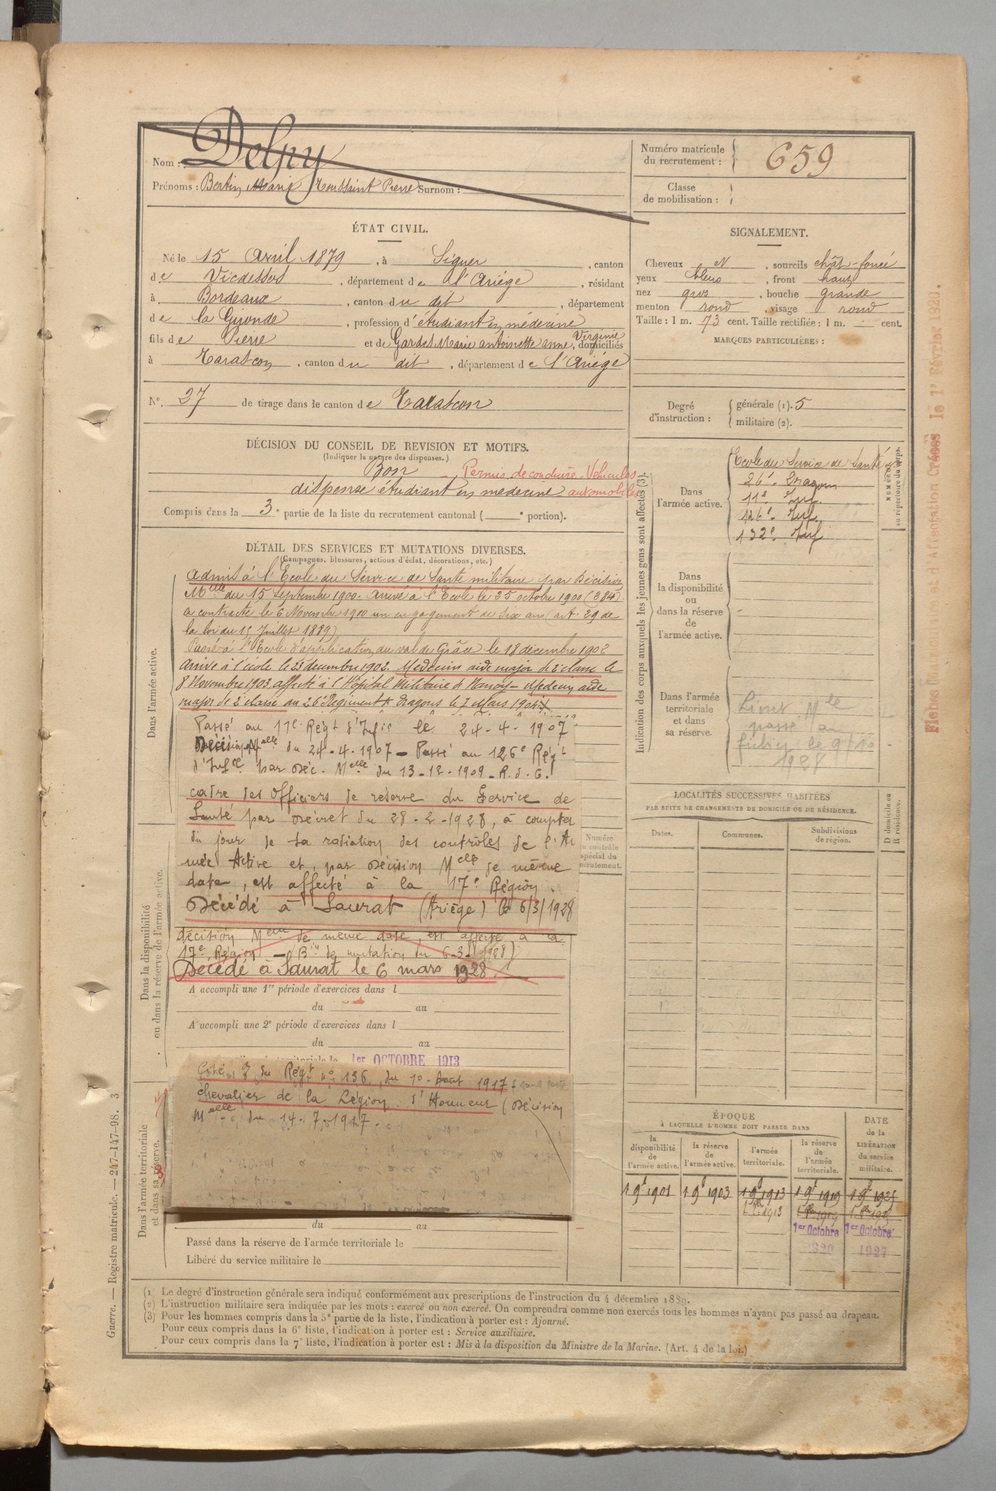 Nom : Delpy
Prénoms : Bertin Marie Toussaint Pierre Surnom :
Numéro matricule du recrutement : 659
Classe de mobilisation :
ÉTAT CIVIL.
Né le 15 Avril 1879, à Siguer, canton
de Vicdessos, département de l'Ariège, résidant
à Bordeaux, canton du dit, département
de la Gironde, profession d'étudiant en médecine
fils de Pierre et de Gardes Marie Antoinette Anne, Virginie domiciliés
à Tarascon, canton du dit, département de l'Ariège
N° 27 de tirage dans le canton de Tarascon
SIGNALEMENT.
Cheveux N, sourcils chât-foncé
yeux bleus, front haut
nez gros, bouche grande
menton rond, visage rond
Taille : 1 m. 73 cent. Taille rectifiée : 1 m. cent.
MARQUES PARTICULIÈRES :
Degré d'instruction : générale (1). 5
militaire (2).
DÉCISION DU CONSEIL DE REVISION ET MOTIFS.
(Indiquer la nature des dispenses.)
Bon Permis de conduire Véhicules
dispensé étudiant en médecine automobiles
Compris dans la 3e partie de la liste du recrutement cantonal ( e portion).
DÉTAIL DES SERVICES ET MUTATIONS DIVERSES.
(Campagnes, blessures, actions d'éclat, décorations, etc.)
Dans l'armée active.
Admis à l'Ecole du Service de Santé militaire par Décision
Mlle du 15 Septembre 1900. Arrivé à l'Ecole le 25 octobre 1900
a contracté le 6 Novembre 1900 un engagement de trois ans (art. 29 de
la loi du 15 Juillet 1889)
Passé à l'Ecole d'application du val de Grâce le 18 décembre 1902
arrivé à l'école le 23 décembre 1902. Médecin aide major de 2e classe le
8 Novembre 1903 affecté à l'Hôpital Militaire de Nancy - Médecin aide
major de 2e classe au 26e Régiment de Dragons le Mars 1904
Passé au 11e Régt d'Infie le 24-4-1907
Décision Mlle du 24-4-1907 - Passé au 126e Régt
d'Infie par Déc. Melle du 13-12-1909
cadre des Officiers de réserve du Service de
Santé par Décret du 28-2-1928, à compter
du jour de sa radiation des contrôles de l'Ar
mée Active et, par Décision Melle de même
date, est affecté à la 17e Région.
Décédé à Saurat (Ariège) le 6/3/1928
décision Melle de même date, est affecté à la
17e Région
Décédé à Saurat le 6 mars 1928.
Dans la disponibilité ou dans la réserve de l'armée active.
A accompli une 1re période d'exercices dans l
du au
A accompli une 2e période d'exercices dans l
du au
1er OCTOBRE 1913
Dans l'armée territoriale et dans sa réserve.
Cité du Régt n° 136 du 10 Aout 1917
chevalier de la Légion d'Honneur (Décision
Melle du 14-7-1917.
du au
Passé dans la réserve de l'armée territoriale le
Libéré du service militaire le
Indication des corps auxquels les jeunes gens sont affectés (3).
Dans l'armée active.
Ecole du Service de Santé
26e Dragons
11e Inf.
126e Inf.
132e Inf
Dans la disponibilité ou dans la réserve de l'armée active.
Dans l'armée territoriale et dans sa réserve.
Livret Mle
passé au
fichier le 9/10
1928
LOCALITÉS SUCCESSIVES HABITÉES
PAR SUITE DE CHANGEMENTS DE DOMICILE OU DE RÉSIDENCE.
Dates. Communes. Subdivisions de région. D domicile ou R résidence.
ÉPOQUE
À LAQUELLE L'HOMME DOIT PASSER DANS
la disponibilité de l'armée active. la réserve de l'armée active. l'armée territoriale. la réserve de l'armée territoriale. DATE de la LIBÉRATION du service militaire.
1901 1903 1913 1919
1er Octobre 1er Octobre
1920 1927
Guerre. — Registre matricule. — 247-147-98. 3
(1) Le degré d'instruction générale sera indiqué conformément aux prescriptions de l'instruction du 4 décembre 1889.
(2) L'instruction militaire sera indiquée par les mots : exercé ou non exercé. On comprendra comme non exercés tous les hommes n'ayant pas passé au drapeau.
(3) Pour les hommes compris dans la 5e partie de la liste, l'indication à porter est : Ajourné.
Pour ceux compris dans la 6e liste, l'indication à porter est : Service auxiliaire.
Pour ceux compris dans la 7e liste, l'indication à porter est : Mis à la disposition du Ministre de la Marine. (Art. 4 de la loi.)